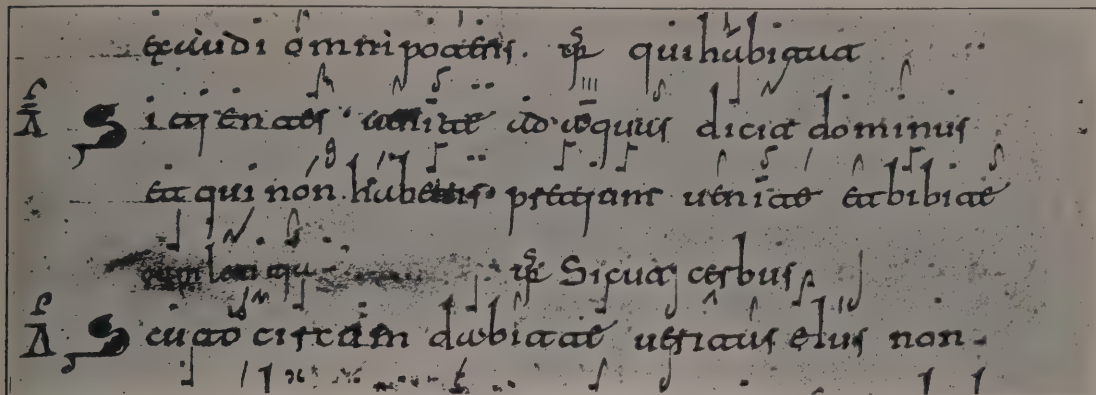 exaudi omnipotens. ps̄ qui habitat
Ā Sitientes uenite ad aquas dicit dominus
et qui non habetis pretium uenite et bibite
ps̄ Sicut cerbus
Ā Scuto circumdabit te ueritas eius non